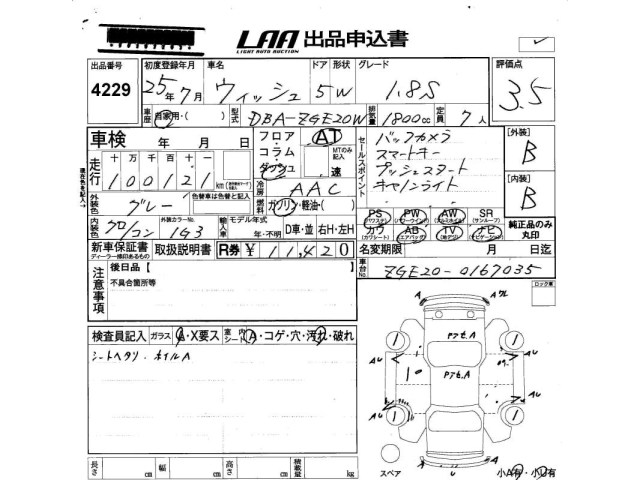 LAA 出品申込書
LIGHT AUTO AUCTION
出品番号 初度登録年月 車名 ドア 形状 グレード 評価点
4229 25年7月 ウィッシュ 5W 1.8S 3.5
車歴 自家用・( ) 型式 DBA-ZGE20W 排気量 1800cc 定員 7人
車検 年 月 日
フロア・コラム・ダッシュ AT
MTのみ記入 速
セールスポイント
バックカメラ
スマートキー
プッシュスタート
キセノンライト
[外装] B
[内装] B
走行 十 万 千 百 十 一
100121 km
冷房 AAC
外装色 グレー 色替車は色替と記入 燃料 ガソリン・軽油・( )
内装色 クロ コン 外装カラーNo. 1G3 輸入車 モデル年式 年・不明 D車・並 右H・左H
PS (パワステ) PW (パワーウィンドウ) AW (アルミホイル) SR (サンルーフ)
カワ (カワシート) AB (エアバッグ) TV (地デジ) ナビ (ナビゲーション)
純正品のみ丸印
新車保証書 取扱説明書 R券 ¥ 11,420
ディーラー捺印あるもの
名変期限 月 日迄
車台No. ZGE20-0167035
注意事項
後日品【
不具合箇所等
検査員記入 ガラス A・X要ス 室内シート A・コゲ・穴・汚れ・破れ
シートヘタリ・ホイルA
A
PアセA
PアセA
AU
AU
AU
AU
1
1
1
1
U
スペア
小A有・小U有
長さ cm 幅 cm 高さ cm 積載量 kg